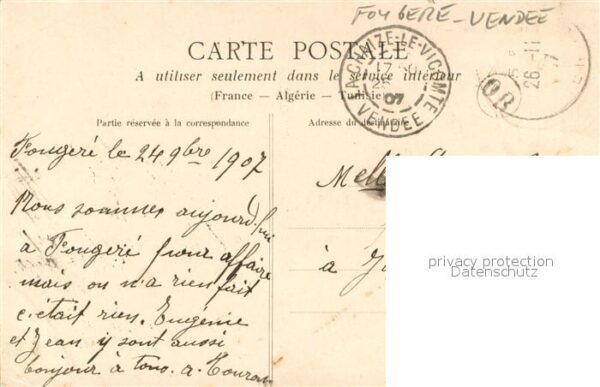 FOUGERÉ - VENDÉE
CARTE POSTALE
A utiliser seulement dans le service intérieur
(France — Algérie — Tunisie)
LA CHAIZE-LE-VICOMTE
07
VENDÉE
OR
26 - 11
Partie réservée à la correspondance
Adresse du destinataire
Fougeré le 24 9bre 1907
Nous sommes aujourd'hui
à Fougeré pour affaire
mais on n'a rien fait
c'était rien. Eugenie
et Jean y sont aussi
bonjour à tous. A.
Melle
à
privacy protection
Datenschutz